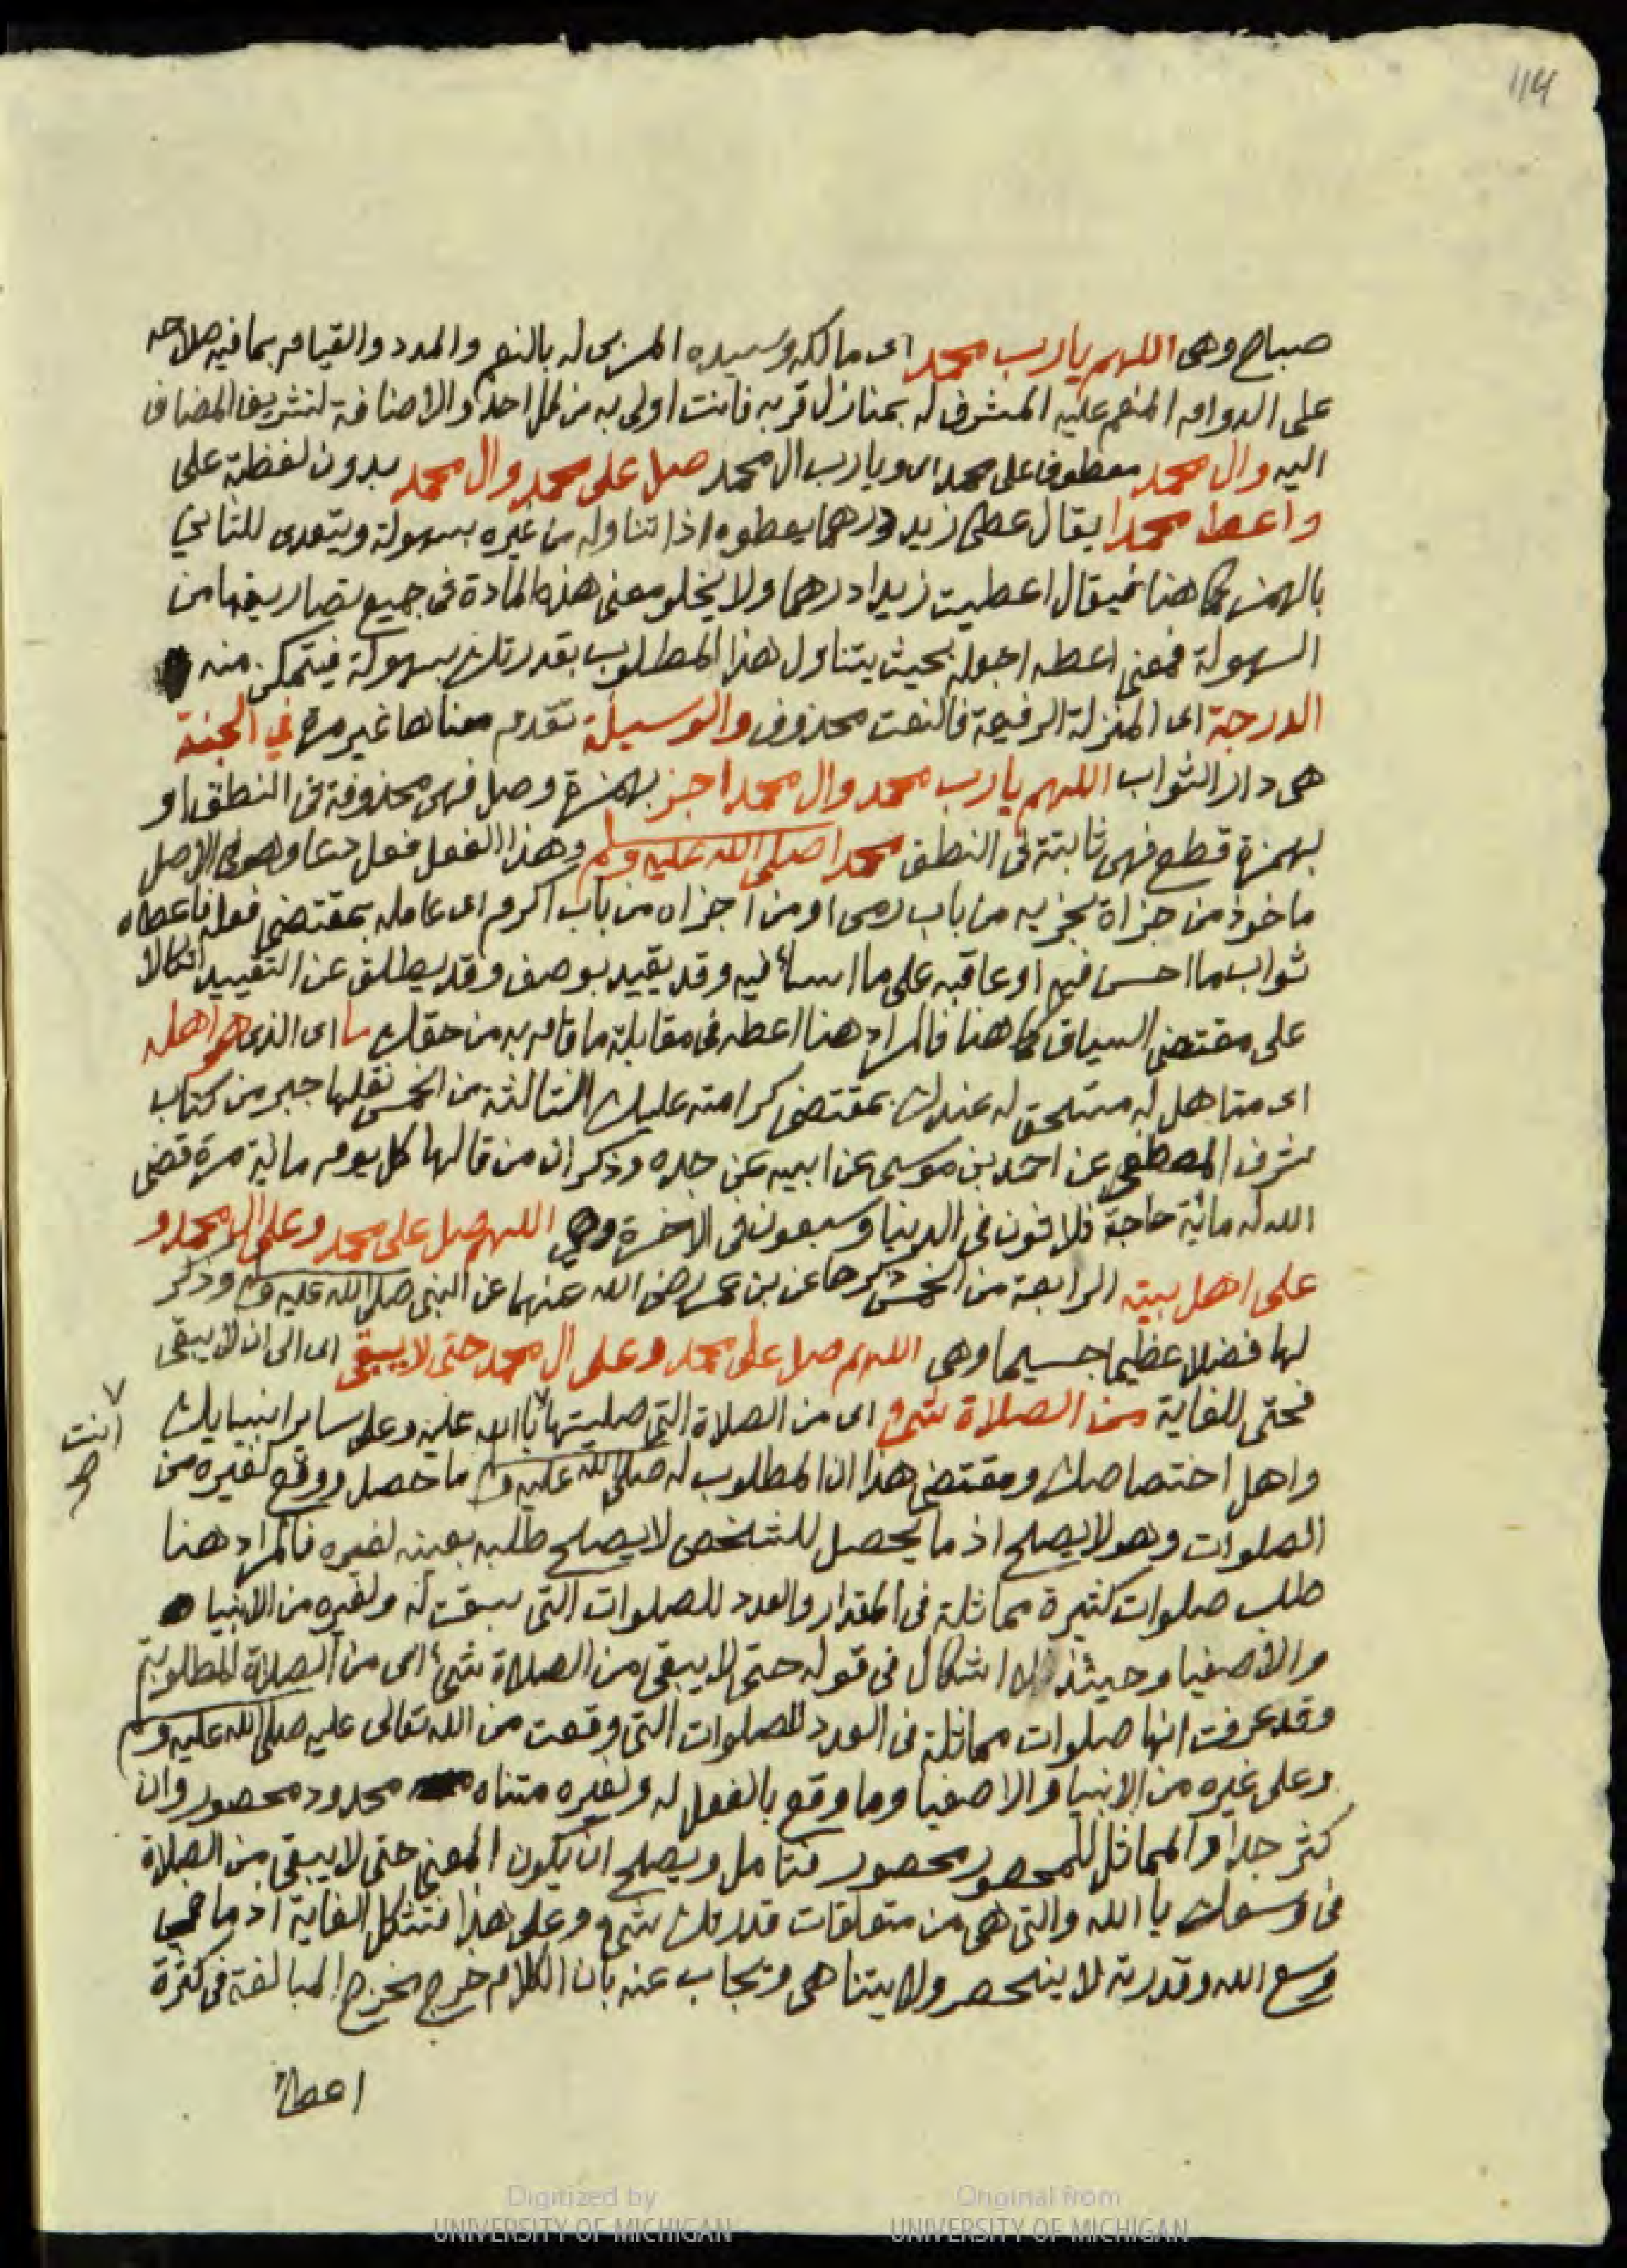 114
صباح وهى اللهم يارب محمد اى مالكه وسيده المربى له بالنعم والمدد والقيام بما فيه صلاحه
على الدوام المنعم عليه المشرف له بمنازل قربه فانت اولى به من كل احد والاضافة لتشريف المضاف
اليه وال محمد معطوف على محمد اى ويارب ال محمد صل على محمد وال محمد بدون لفظة على
واعط محمدا يقال عطى زيد درهما يعطوه اذا تناوله من غيره بسهولة ويتعدى للثانى
بالهمز كما هنا فيقال اعطيت زيدا درهما ولا يخلو معنى هذه المادة فى جميع تصاريفها من
السهولة فمعنى اعطه اجعله بحيث يتناول هذا المطلوب بقدرتك بسهولة فيتمكن منه
الدرجة اى المنزلة الرفيعة فالنعت محذوف والوسيلة تقدم معناها غير مرة في الجنة
هى دار الثواب اللهم يارب محمد وال محمد اجز بهمزة وصل فهى محذوفة فى النطق او
بهمزة قطع فهى ثابتة فى النطق محمدا صلى الله عليه وسلم وهذا الفعل فعل دعا وهو فى الاصل
ماخوذ من جزاه يجزيه من باب رمى او من اجزاه من باب اكرم اى عامله بمقتضى فعله فاعطاه
ثواب ما احسن فيه او عاقبه على ما اساء فيه وقد يقيد بوصف وقد يطلق عن التقييد اتكالا
على مقتضى السياق كما هنا فالمراد هنا اعطه فى مقابلة ما قام به من حقك ما اى الذى هو اهله
اى متاهل له مستحق له عندك بمقتضى كرامته عليك الثالثة من الخمس نقلها جبر من كتاب
شرف المصطفى عن احمد بن موسى عن ابيه عن جده وذكر ان من قالها كل يوم مائة مرة قضى
الله له مائة حاجة ثلاثون فى الدنيا وسبعون فى الاخرة وهي اللهم صل على محمد وعلى ال محمد و
على اهل بيته الرابعة من الخمس ذكرها عن بن عمر رضى الله عنهما عن النبى صلى الله عليه وسلم وذكر
لها فضلا عظيما جسيما وهى اللهم صل على محمد وعلى ال محمد حتى لا يبقى اى الى ان لا يبقى
فحتى للغاية من الصلاة شئ اى من الصلاة التى صليتها يا الله عليه وعلى ساير انبيايك
انت صح
واهل اختصاصك ومقتضى هذا ان المطلوب له صلى الله عليه وسلم ما حصل ووقع لغيره من
الصلوات وهو لا يصلح اذ ما يحصل للشخص لا يصلح طلبه بعينه لغيره فالمراد هنا
طلب صلوات كثيرة مماثلة فى المقدار والعدد للصلوات التى سبقت له ولغيره من الانبيا
والاصفيا وحينئذ لا اشكال فى قوله حتى لا يبقى من الصلاة شئ اى من الصلاة المطلوبة
وقد عرفت انها صلوات مماثلة فى العدد للصلوات التى وقعت من الله تعالى عليه صلى الله عليه وسلم
وعلى غيره من الانبيا والاصفيا وما وقع بالفعل له ولغيره متناه محدود محصور وان
كثر جدا والمماثل للمحصور محصور فتامل ويصلح ان يكون المعنى حتى لا يبقى من الصلاة
فى وسعك يا الله والتى هى من متعلقات قدرتك شئ وعلى هذا فتشكل الغاية اذ ما في
وسع الله وقدرته لا ينحصر ولا يتناهى ويجاب عنه بان الكلام خرج مخرج المبالغة فى كثرة
اعطا
Digitized by
UNIVERSITY OF MICHIGAN
Original from
UNIVERSITY OF MICHIGAN